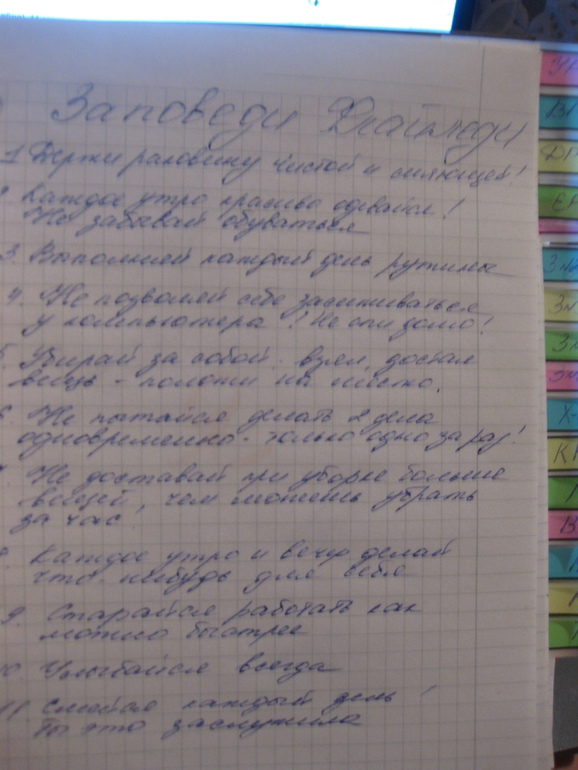 Заповеди Флайледи
1. Держи раковину чистой и сияющей!
Каждое утро красиво одевайся!
Не забывай обуваться
3. Выполняй каждый день рутины
4. Не позволяй себе засиживаться
у компьютера! Не спи долго!
Убирай за собой. Взял, достал
вещь - положи на место.
Не пытайся делать 2 дела
одновременно - только одно за раз!
Не доставай при уборке больше
вещей, чем можешь убрать
за час
Каждое утро и вечер делай
что-нибудь для себя
9. Старайся работать как
можно быстрее
10 Улыбайся всегда
11 Смейся каждый день!
Ты это заслужила
К1
В